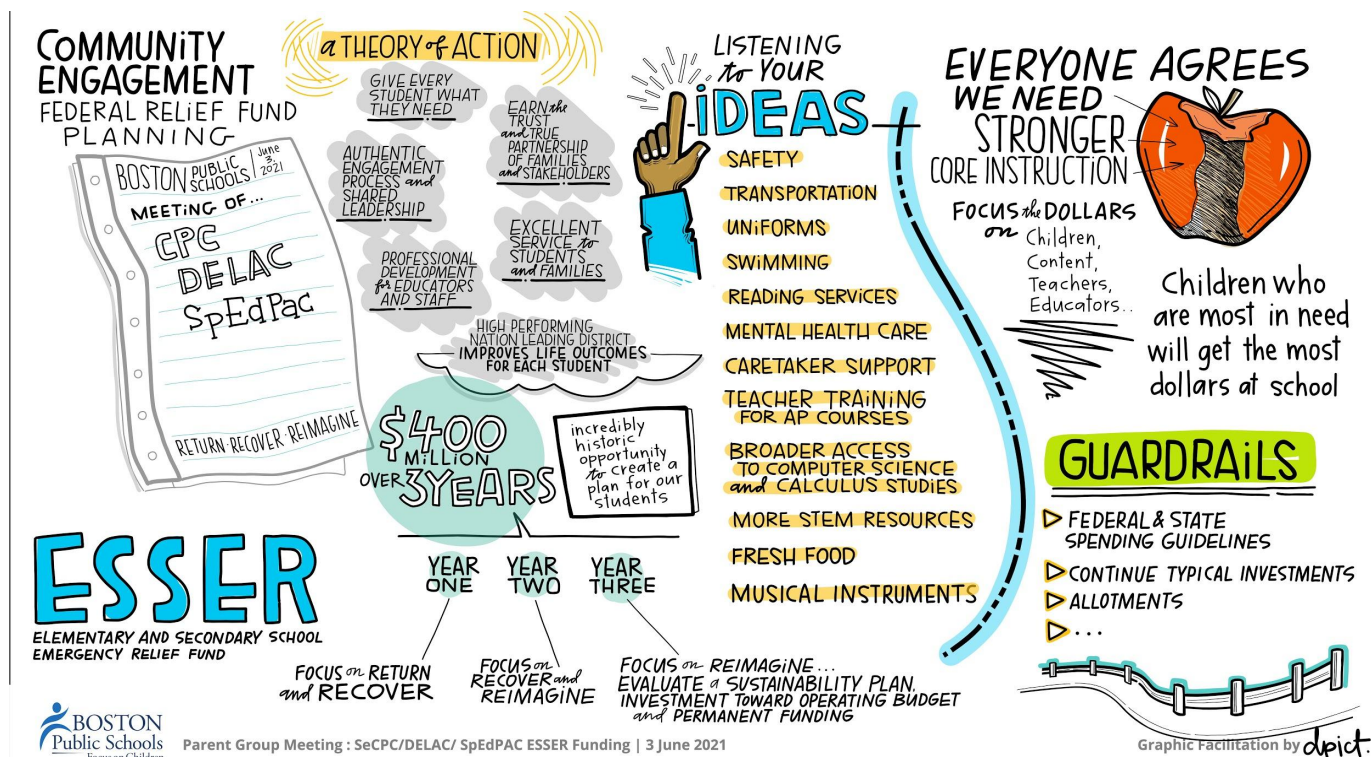 COMMUNITY
ENGAGEMENT
FEDERAL RELIEF FUND
PLANNING
BOSTON PUBLIC SCHOOLS June 3, 2021
MEETING OF...
CPC
DELAC
SpEdPac
RETURN·RECOVER·REIMAGINE
ESSER
ELEMENTARY AND SECONDARY SCHOOL
EMERGENCY RELIEF FUND
a THEORY of ACTION
GIVE EVERY
STUDENT WHAT
THEY NEED
EARN the
TRUST
and TRUE
PARTNERSHIP
OF FAMILIES
and STAKEHOLDERS
AUTHENTIC
ENGAGEMENT
PROCESS and
SHARED
LEADERSHIP
EXCELLENT
SERVICE to
STUDENTS
and FAMILIES
PROFESSIONAL
DEVELOPMENT
for EDUCATORS
AND STAFF
HIGH PERFORMING
NATION LEADING DISTRICT
IMPROVES LIFE OUTCOMES
FOR EACH STUDENT
$400
MILLION
OVER 3 YEARS
incredibly
historic
opportunity
to create a
plan for our
students
YEAR
ONE
YEAR
TWO
YEAR
THREE
FOCUS on RETURN
and RECOVER
FOCUS on
RECOVER and
REIMAGINE
FOCUS on REIMAGINE...
EVALUATE a SUSTAINABILITY PLAN,
INVESTMENT TOWARD OPERATING BUDGET
and PERMANENT FUNDING
LISTENING
to YOUR
IDEAS
SAFETY
TRANSPORTATION
UNIFORMS
SWIMMING
READING SERVICES
MENTAL HEALTH CARE
CARETAKER SUPPORT
TEACHER TRAINING
FOR AP COURSES
BROADER ACCESS
TO COMPUTER SCIENCE
and CALCULUS STUDIES
MORE STEM RESOURCES
FRESH FOOD
MUSICAL INSTRUMENTS
EVERYONE AGREES
WE NEED
STRONGER
CORE INSTRUCTION
FOCUS the DOLLARS
on Children,
Content,
Teachers,
Educators..
Children who
are most in need
will get the most
dollars at school
GUARDRAILS
FEDERAL & STATE
SPENDING GUIDELINES
CONTINUE TYPICAL INVESTMENTS
ALLOTMENTS
...
BOSTON
Public Schools
Focus on Children
Parent Group Meeting : SeCPC/DELAC/ SpEdPAC ESSER Funding | 3 June 2021
Graphic Facilitation by dpict.